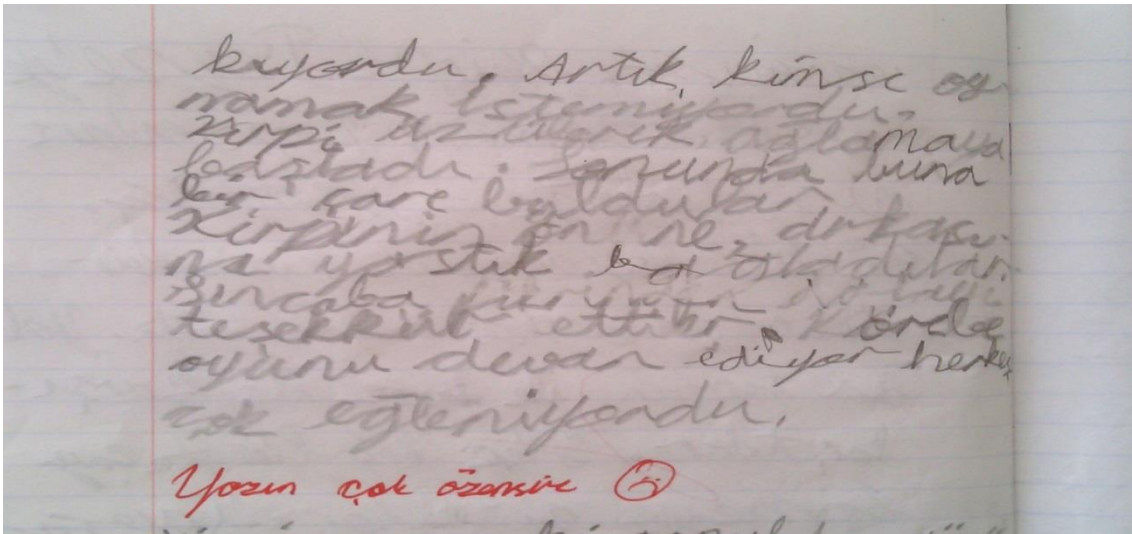 kıyordu. Artık, kimse oy-
namak istemiyordu.
Kirpi üzülerek ağlamaya
başladı. Sonunda buna
bir çare buldular
Kirpinin önüne, arkası-
na yastık bağladılar.
Sincaba
teşekkür ettiler. Körebe
oyunu devam ediyor herkes
çok eğleniyordu.
Yazın çok özensiz ☹